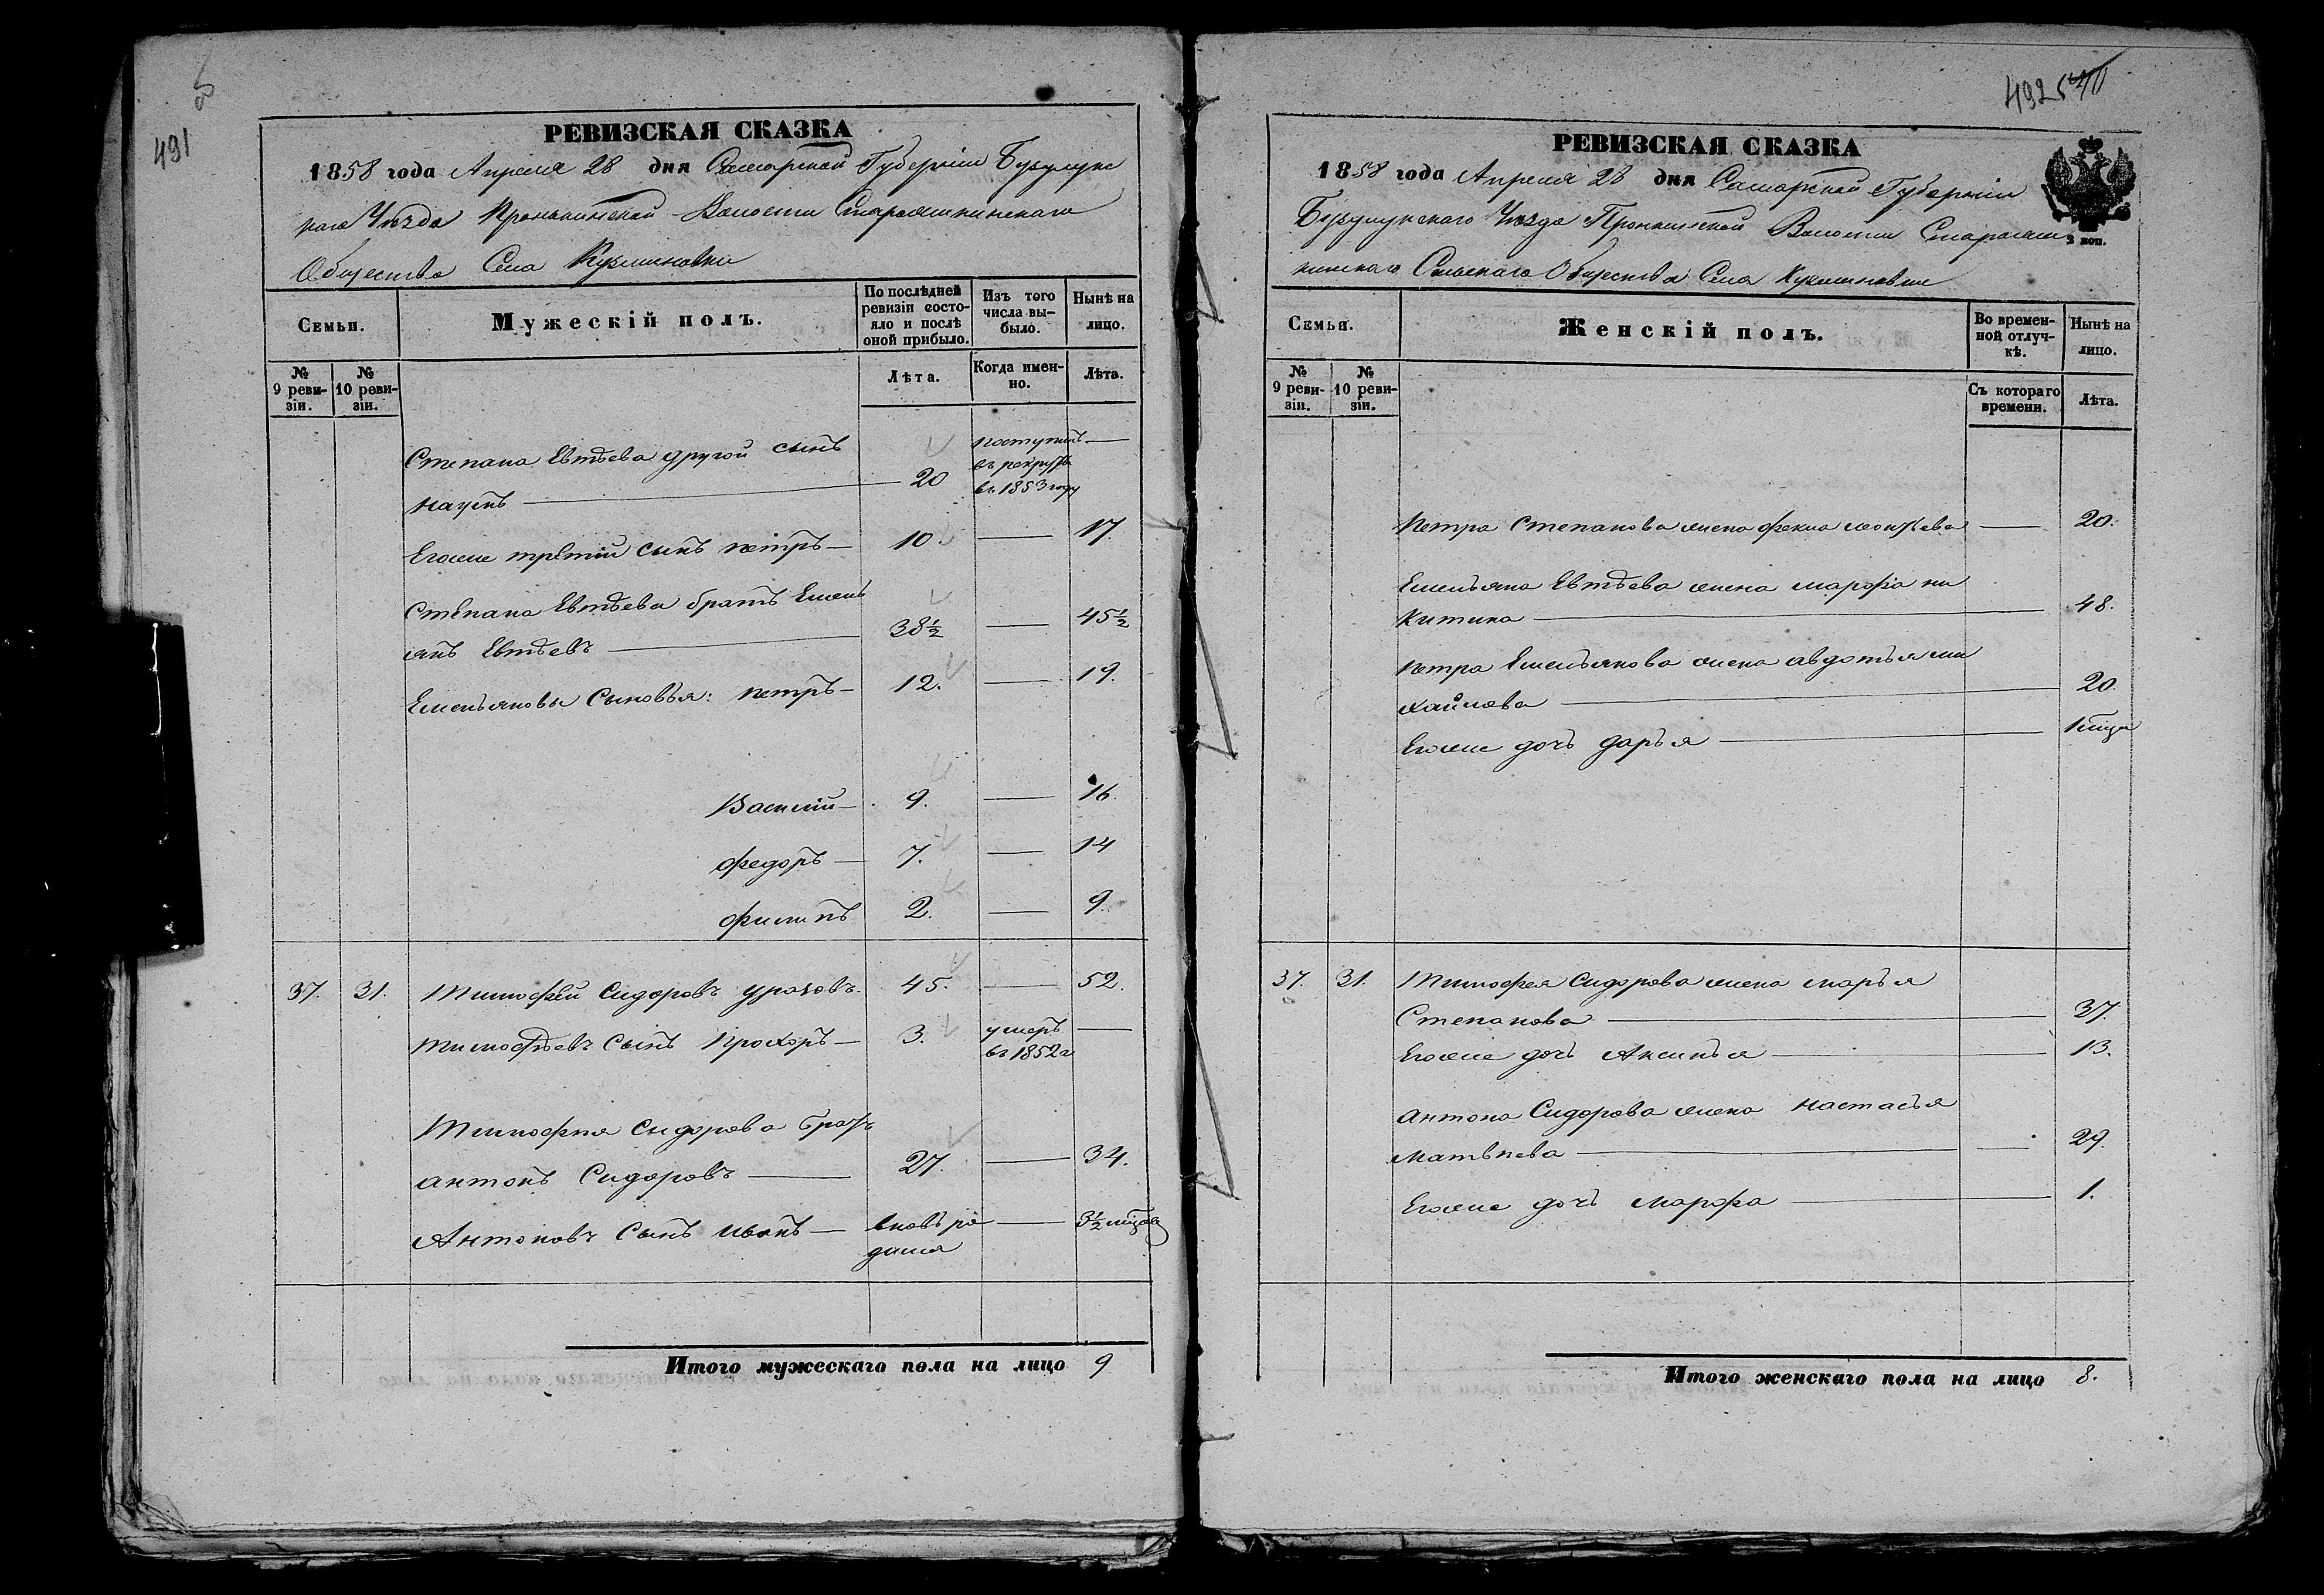 491
РЕВИЗСКАЯ СКАЗКА
1858 года Апреля 28 дня Самарской Губерніи Бузулукс
каго Уезда Пронькинской Волости Староашкинскаго
Общества Села Кузминовки
Семьи.
Мужескій полъ.
По послѣдней ревизіи состояло и послѣ оной прибыло.
Изъ того числа выбыло.
Нынѣ на лицо.
№ 9 ревизіи.
№ 10 ревизіи.
Лѣта.
Когда именно.
Лѣта.
Степана Евтѣева другой сынъ
Наумъ — 20 поступилъ въ рекруты въ 1853 году —
Егоже третій сынъ петръ — 10. — 17.
Степана Евтѣева братъ Емель
янъ Евтѣевъ — 38½ — 45½
Емельяновы Сыновья: петръ — 12. — 19.
Василій — 9. — 16.
федоръ — 7. — 14
филипъ 2. — 9.
37. 31. Тимофей Сидоровъ уразовъ. 45. — 52.
Тимофѣевъ Сынъ Прохоръ — 3. умеръ въ 1852 г —
Тимофея Сидорова братъ
антонъ Сидоровъ — 27. — 34.
Антоновъ Сынъ иванъ — вновь ро
дился — 3½ мцов
Итого мужескаго пола на лицо 9
492 540
РЕВИЗСКАЯ СКАЗКА
1858 года Апреля 28 дня Самарской Губерніи
Бузулукскаго Уезда Пронкинской Волости Староаш
кинскаго Сельскаго Общества Села Кузминовки
2 коп.
Семьи.
Женскій полъ.
Во временной отлучкѣ.
Нынѣ на лицо.
№ 9 ревизіи.
№ 10 ревизіи.
Съ котораго времени.
Лѣта.
Петра Степанова жена фекла — 20.
Емельяна Евтѣева жена марфа ни
китина — 48.
петра Емельянова жена авдотья ми
хайлова — 20.
Егоже дочь дарья — 1 мцъ
37. 31. Тимофея Сидорова жена марья
Степанова — 37.
Егоже дочь Аксинья — 13.
антона Сидорова жена настасья
матвѣева — 29.
Егоже дочь марфа — 1.
Итого женскаго пола на лицо 8.